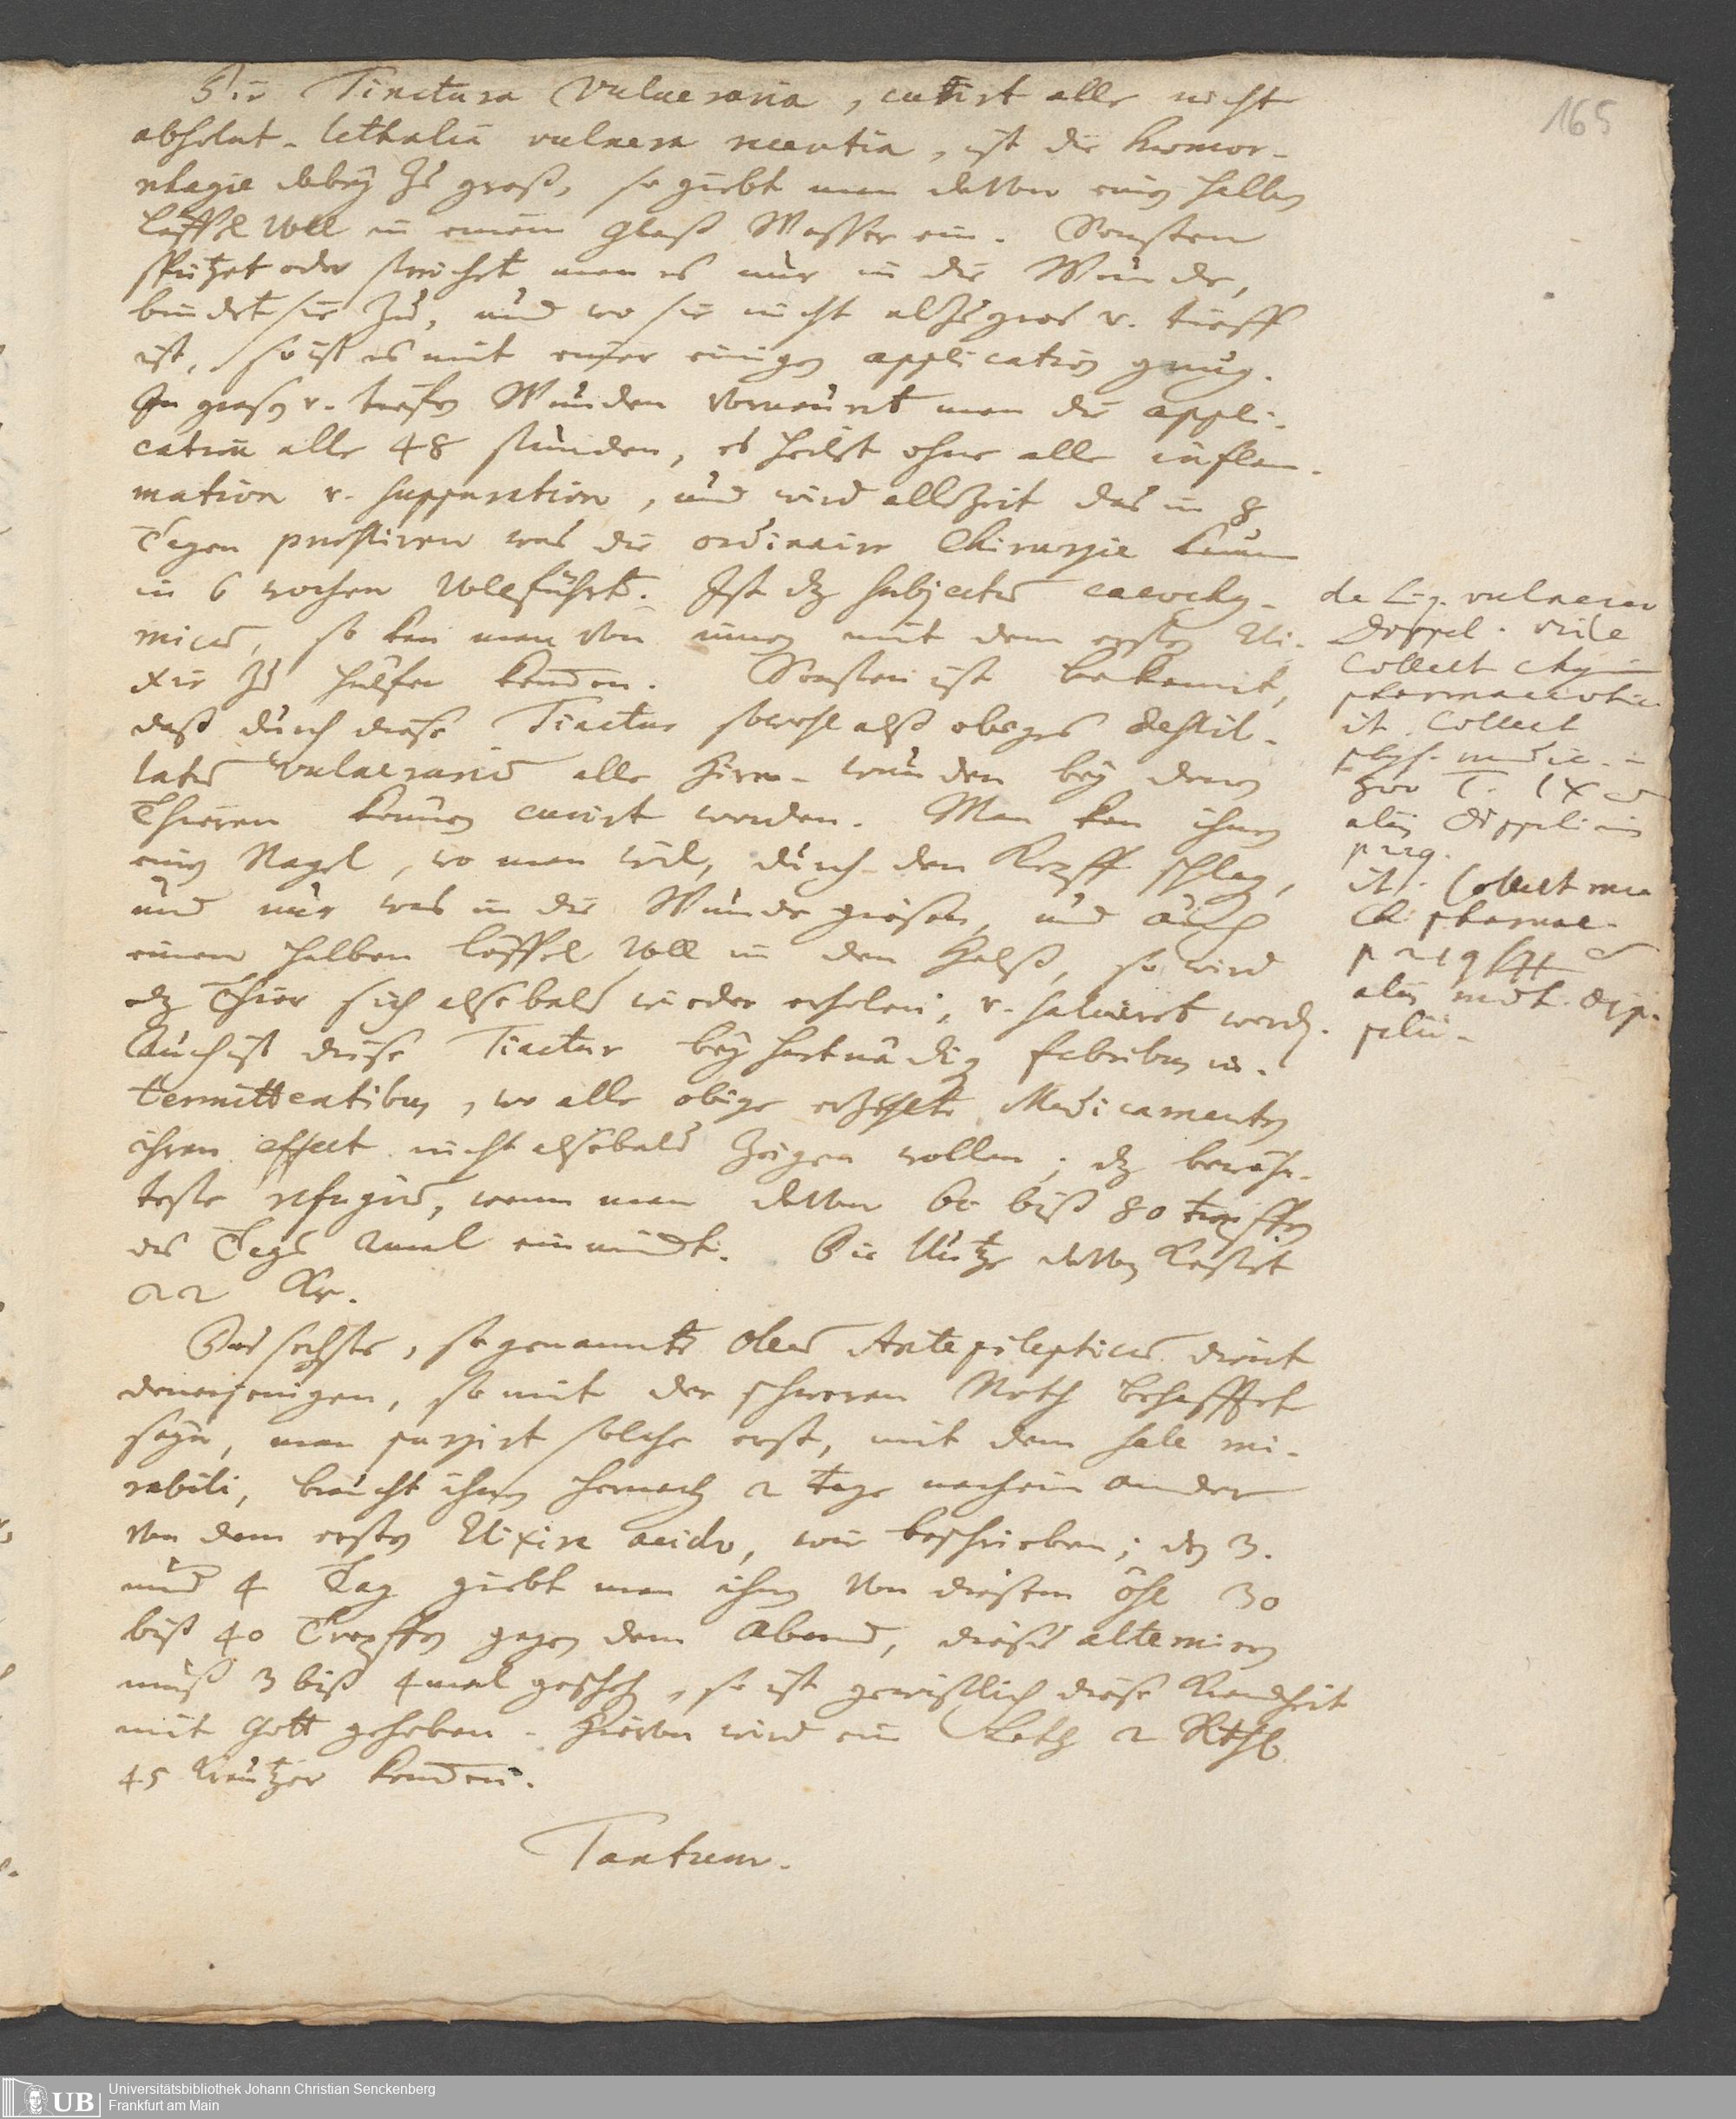 165
Die Tinctura Vulneraria, curirt alle nicht
absolut-lethalia vulnera recentia, ist die haemor-
rhagie dabey zu groß, so giebt man davon einen halben
Löffel voll in einem Glaß Wasser ein. Sonsten
spützet oder streichet man es nur in die Wunde,
bindet sie zu, und wo sie nicht alzugros u. tieff
ist, so ist es mit einer einigen application gnug.
In großen u. tiefen Wunden erneuret man die appli-
cation alle 48 stunden, es heilet ohne alle inflam-
mation u. suppuration, und wird allezeit das in 8
Tagen praestiren was die ordinaire Chirurgie kaum
in 6 wochen vollführt. Ist dz subjectum cacochy-
micum, so kan man von innen mit dem ersten Eli-
xir zu hülfen kommen. Sonsten ist bekannt,
daß durch diese Tinctur sowohl alß obiges destil-
latum vulnerarium alle Hirn-wunden bey denen
Thieren können curirt werden. Man kan ihnen
einen Nagel, wo man will, durch den Kopff schlagen,
und nur was in die Wunde giesen, und auch
einen halben Löffel voll in den Halß, so wird
dz Thier sich alsobald wieder erholen, u. salviret werden.
Auch ist diese Tinctur bey hartnäckigen febribus in-
termittentibus, wo alle obige erzehlte Medicamenten
ihren effect nicht alsobald zeigen wollen, dz bewähr-
teste refugium, wenn man davon 60 biß 80 tropffen
des Tags 2mal einnimmt. Die Untze davon kostet
22 Kr.
Das sechste, so genannte Oleum Antepilepticum dient
denenjenigen, so mit der schweren Noth behafftet
seyn, man purgirt solche erst, mit dem sale mi-
rabili, braucht ihnen hernach 2 tage nach einander
von dem ersten Elixire acido, wie beschrieben; den 3.
und 4 Tag giebt man ihnen von diesem öhl 30
biß 40 Tropffen gegen dem Abend, dieses alterniren
muß 3 biß 4mal geschehen, so ist gewißlich diese Kranckheit
mit Gott gehoben. Hiervon wird ein Loth 2 Rthl
45 Kreutzer kommen.
Tantum.
de Liq. vulnerar
Dippel. vide
Collect chym
pharmaceutic
it. Collect
phys. medic. in
alÿs Dippelianis
p 229.
it. Collect mea
Ch. pharmac.
p 219
alÿs medic. Dip-
pelii.
Universitätsbibliothek Johann Christian Senckenberg
Frankfurt am Main
UB